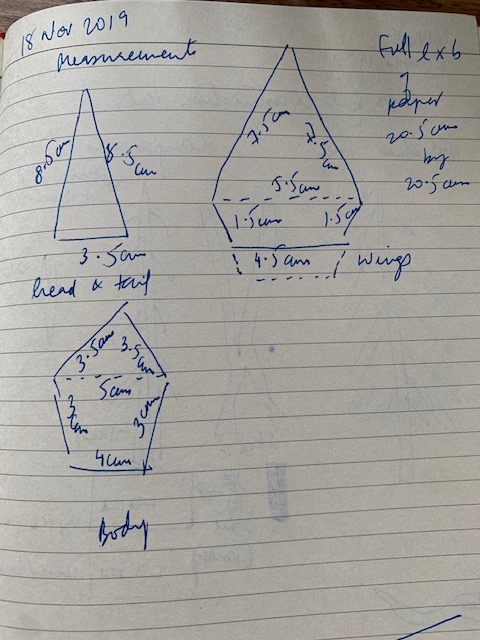 18 Nov 2019
Measurement
8.5cm
8.5cm
3.5cm
head & tail
7.5cm
7.5cm
5.5cm
1.5cm
1.5cm
4.5cm
wings
Full l x b
of
paper
20.5cm
by
20.5cm
3.5cm
3.5cm
5cm
3cm
3cm
4cm
Body